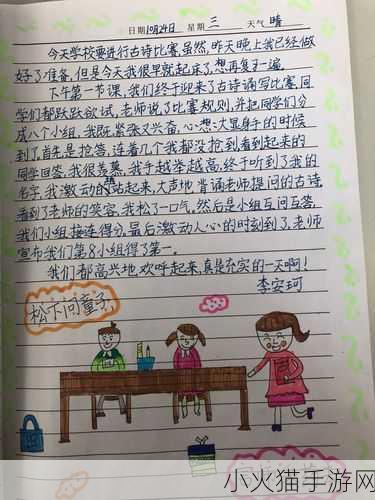 日期10月24日 星期 三 天气 晴
今天学校要进行古诗比赛,虽然,昨天晚上我已经做
好了准备,但是今天我很早就起床了,想再复习一遍。
下午第一节课,我们终于迎来了古诗诵写比赛,同
学们都跃跃欲试,老师说了比赛规则,并把同学们分
成八个小组,我既紧张又兴奋,心想:大显身手的时候
到了,首先是抢答,连着几个我都没抢到看到起来的
同学回答,我很羡慕,我手越举越高,终于听到了我的
名字,我激动的站起来,大声地背诵老师提问的古诗,
看到了老师的笑容,我松了一口气。然后是小组互问互答,
我们小组接连得分,最后激动人心的时刻到了,老师
宣布我们第8小组得了第一。
我们都高兴地欢呼起来,真是充实的一天啊!
李安珂
松下问童子
小火猫手游网